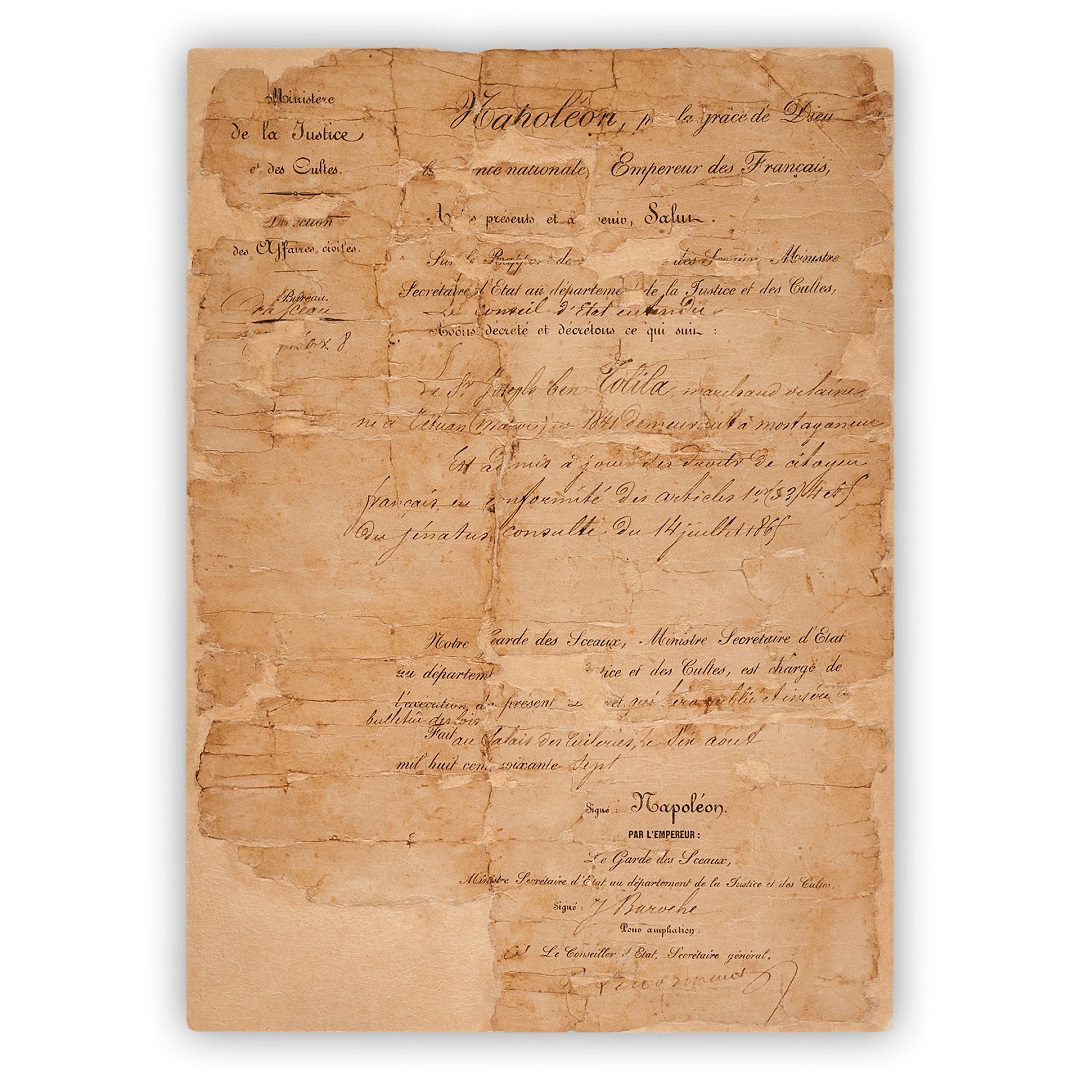 Ministère
de la Justice
et des Cultes.
Direction
des Affaires civiles.
Bureau
du sceau
x 8
Napoléon, p la grâce de Dieu
nté nationale, Empereur des Français,
A s présents et à venir, Salut.
Sur le Rapport de des Sceaux, Ministre
Secrétaire d'Etat au départeme de la Justice et des Cultes,
Le Conseil d'Etat entendu
Avons décrété et décrétons ce qui suit :
Le Sr Joseph ben Tolila marchand de laine
né à Tétuan (Maroc) en 1841 demeurant à mostaganem
Est admis à jouir des droits de citoyen
français en conformité des articles 1er (§ 2) 4 et 5
du sénatus consulte du 14 juillet 1865
Notre Garde des Sceaux, Ministre Secrétaire d'Etat
au départem tice et des Cultes, est chargé de
l'exécution du présent et qui sera publié et inséré au
bulletin des lois
Fait au Palais des Tuileries, le 8 août
mil huit cent soixante sept
Signé : Napoléon.
PAR L'EMPEREUR :
Le Garde des Sceaux,
Ministre Secrétaire d'Etat au département de la Justice et des Cultes,
Signé : J Baroche
Pour ampliation.
Le Conseiller d'Etat, Secrétaire général,